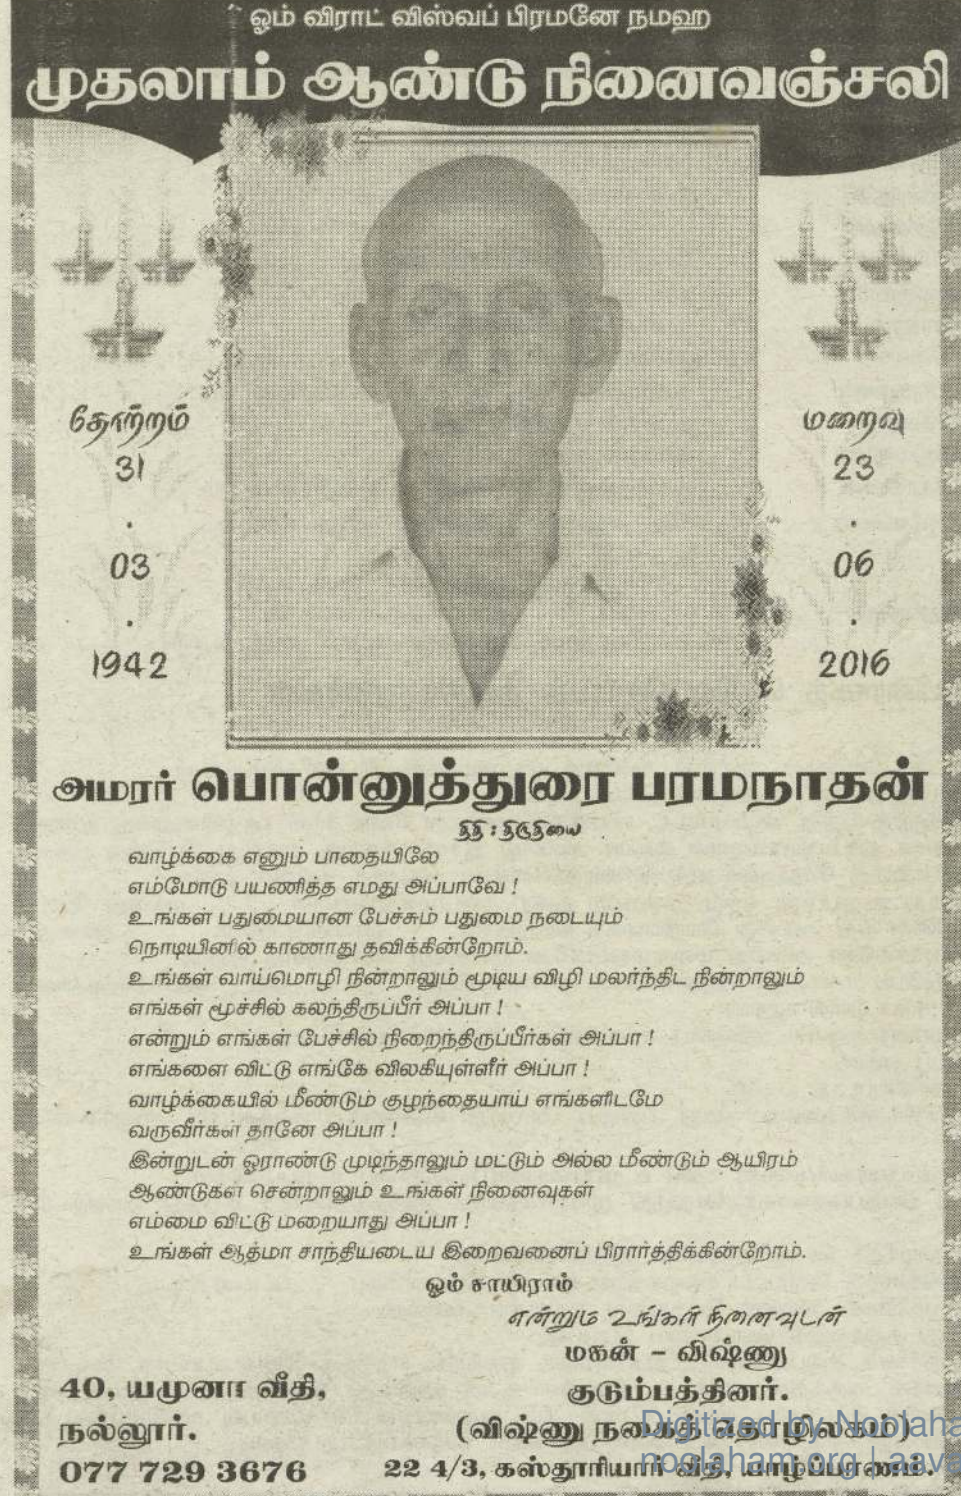 ஓம் விராட் விஸ்வப் பிரமனே நமஹ
முதலாம் ஆண்டு நினைவஞ்சலி
தோற்றம்
31
.
03
.
1942
மறைவு
23
.
06
.
2016
அமரர் பொன்னுத்துரை பரமநாதன்
திதி : திருதியை
வாழ்க்கை எனும் பாதையிலே
எம்மோடு பயணித்த எமது அப்பாவே !
உங்கள் பதுமையான பேச்சும் பதுமை நடையும்
நொடியினில் காணாது தவிக்கின்றோம்.
உங்கள் வாய்மொழி நின்றாலும் மூடிய விழி மலர்ந்திட நின்றாலும்
எங்கள் மூச்சில் கலந்திருப்பீர் அப்பா !
என்றும் எங்கள் பேச்சில் நிறைந்திருப்பீர்கள் அப்பா !
எங்களை விட்டு எங்கே விலகியுள்ளீர் அப்பா !
வாழ்க்கையில் மீண்டும் குழந்தையாய் எங்களிடமே
வருவீர்கள் தானே அப்பா !
இன்றுடன் ஓராண்டு முடிந்தாலும் மட்டும் அல்ல மீண்டும் ஆயிரம்
ஆண்டுகள் சென்றாலும் உங்கள் நினைவுகள்
எம்மை விட்டு மறையாது அப்பா !
உங்கள் ஆத்மா சாந்தியடைய இறைவனைப் பிரார்த்திக்கின்றோம்.
ஓம் சாயிராம்
என்றும் உங்கள் நினைவுடன்
மகன் – விஷ்ணு
குடும்பத்தினர்.
(விஷ்ணு நகைத் தொழிலகம்)
22 4/3, கஸ்தூரியார் வீதி, யாழ்ப்பாணம்.
40, யமுனா வீதி,
நல்லூர்.
077 729 3676
Digitized by Noolaha
noolaham.org | aava